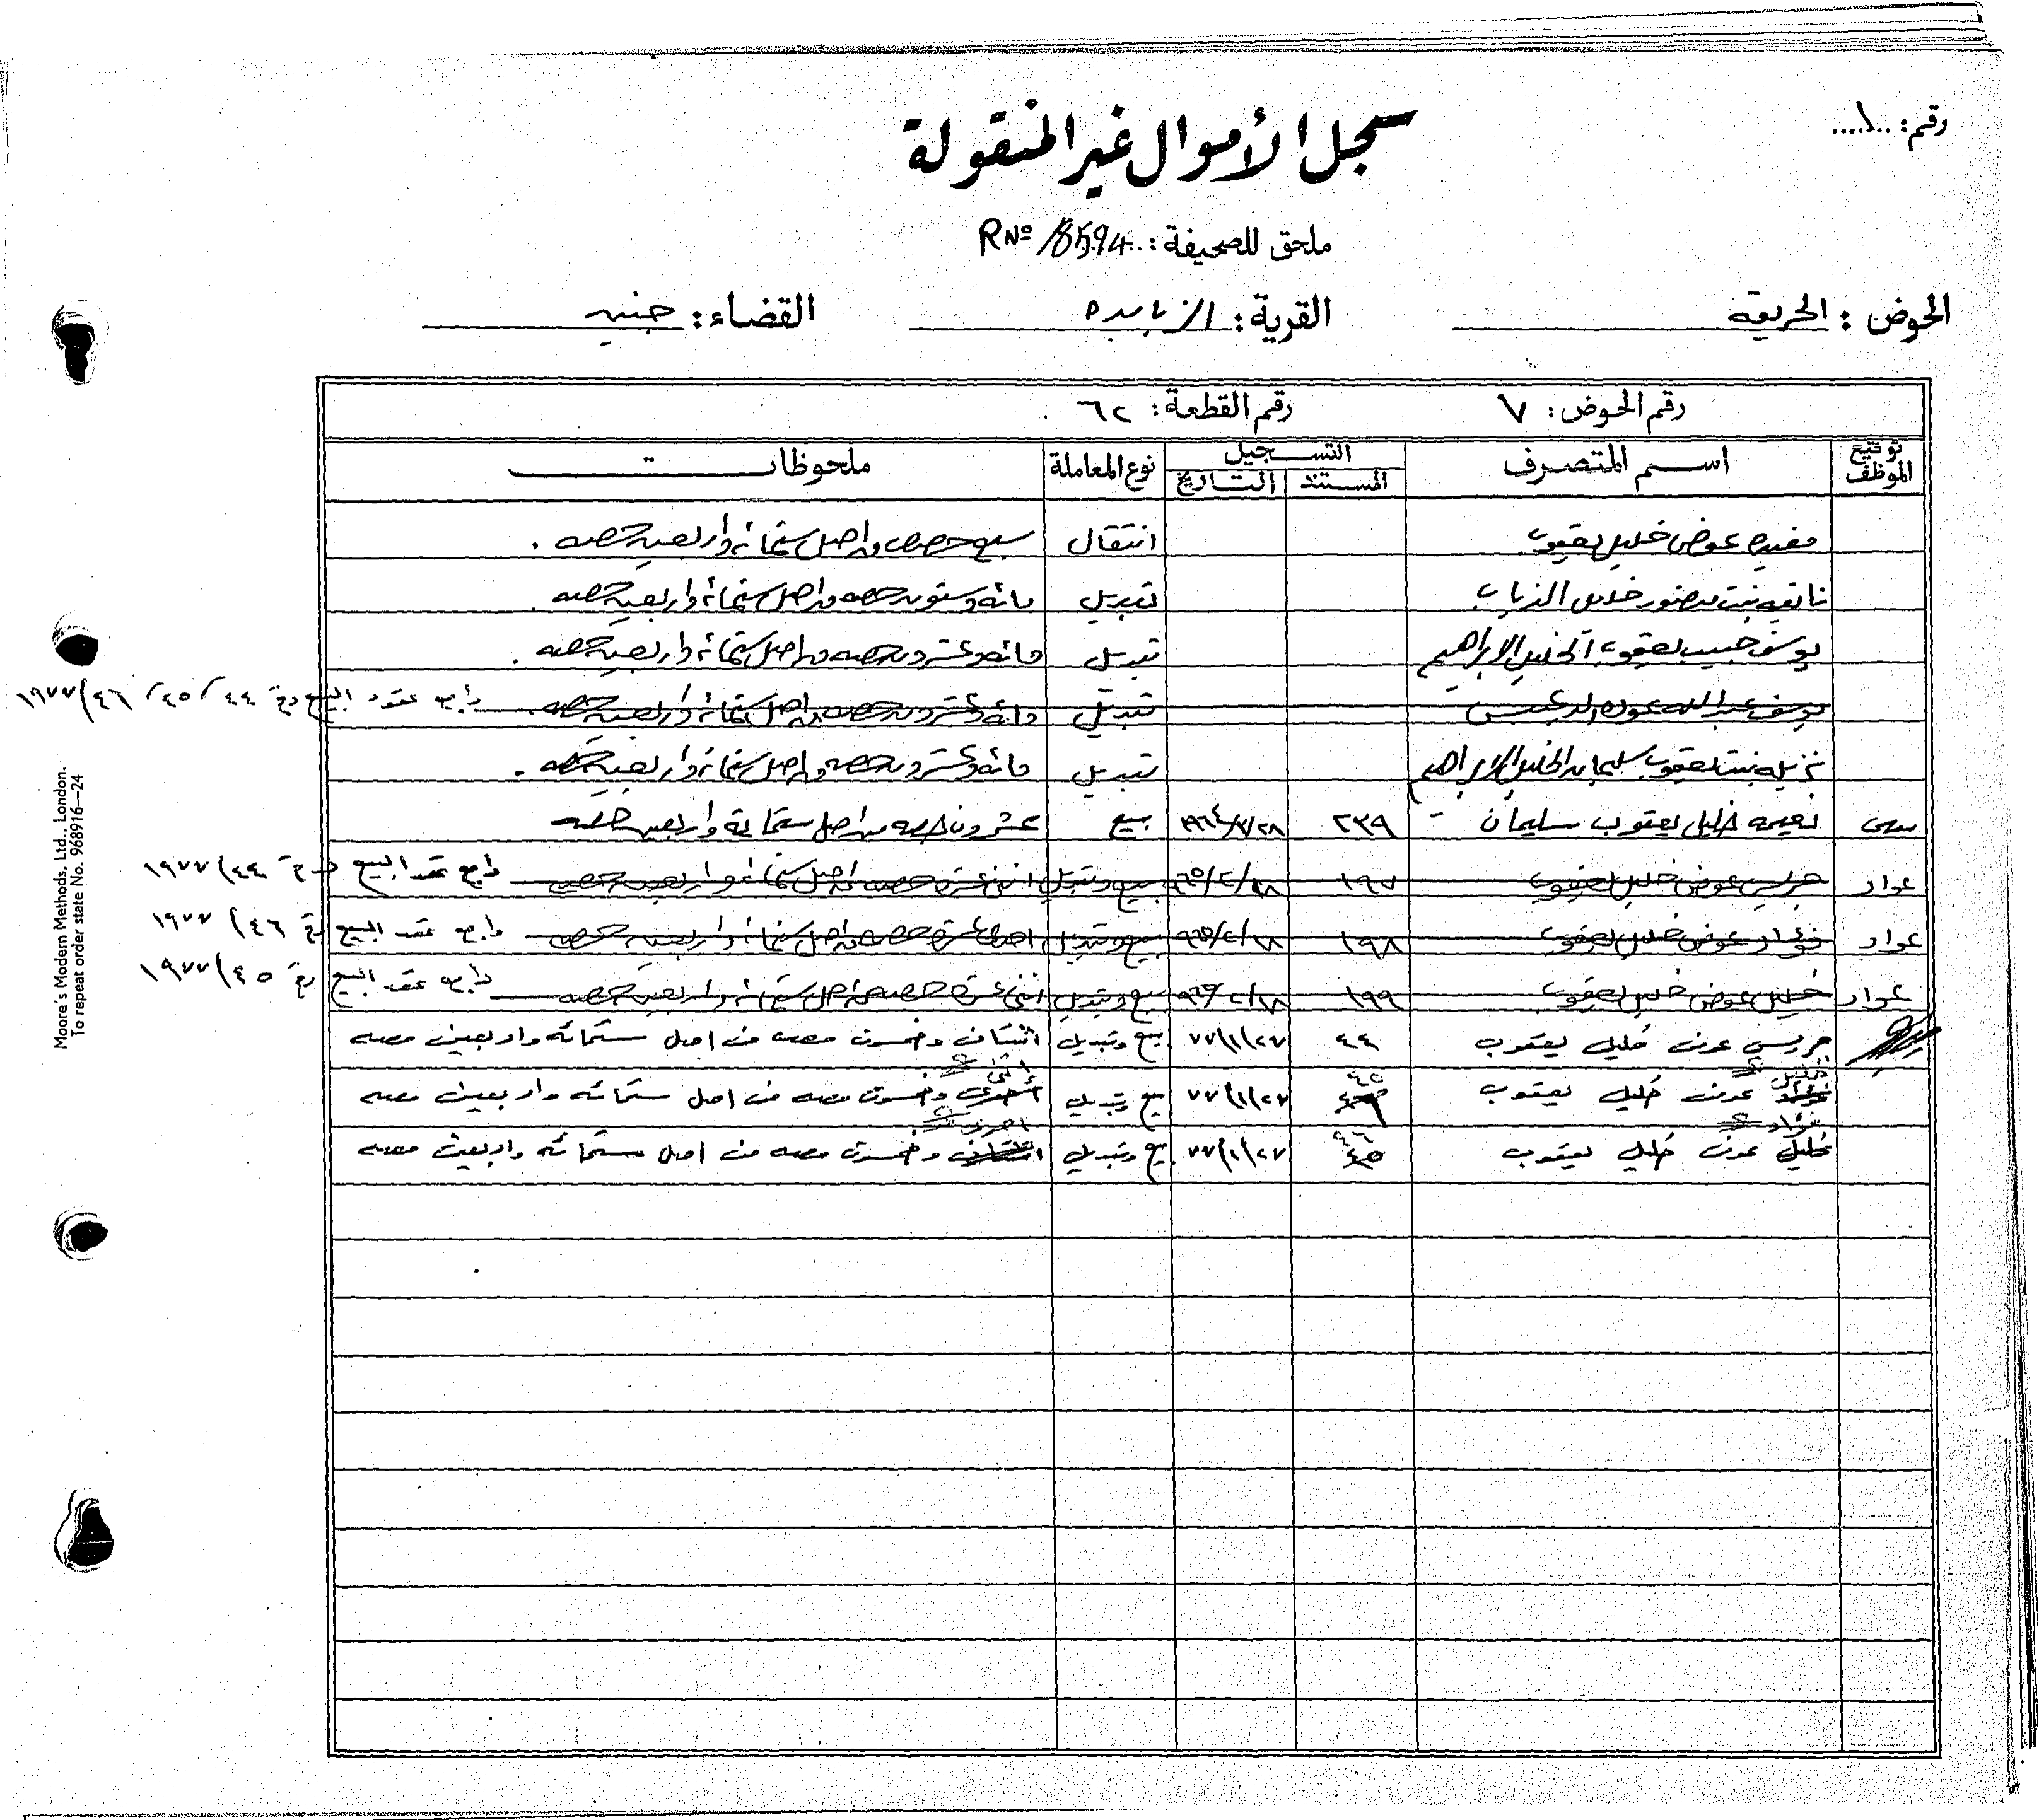 رقم: ..١...
سجل الأموال غير المنقولة
ملحق للصحيفة: RNº 18594
الحوض: الحريقه القرية: الزبابده القضاء: جنين
رقم الحوض: ٧ رقم القطعة: ٦٢
توقيع الموظف اسم المتصرف التسجيل نوع المعاملة ملحوظات
المستند التاريخ
مفيده عوض خليل يعقوب انتقال سبع حصص من اصل ستمائة واربعين حصه.
بنت منصور خليل الذياب تبديل مائه وستون حصه من اصل ستمائة واربعين حصه.
يوسف حبيب يعقوب الخليل الابراهيم تبديل مائه وعشرون حصه من اصل ستمائة واربعين حصه.
يوسف عبدالله عوده تبديل مائه وعشرون حصه من اصل ستمائة واربعين حصه. راجع عقود البيع رقم ٤٤/٤٥/٤٦/١٩٧٧
نزيله بنت يعقوب سليمان الخليل الابراهيم تبديل مائه وعشرون حصه من اصل ستمائة واربعين حصه.
نعيمه خليل يعقوب سليمان ٢٣٩ ١٩٦٤/٧/٢٨ بيع عشرون حصه من اصل ستماية واربعين حصه
عواد جريس عوض خليل يعقوب ١٩٧ ٩٦٥/٢/١٨ بيع وتبديل اثنى عشرة حصه من اصل ستمائة واربعين حصه راجع عقد البيع رقم ١٩٧٧/٤٤
عواد فؤاد عوض خليل يعقوب ١٩٨ ٩٦٥/٢/١٨ بيع وتبديل احدى عشرة حصه من اصل ستمائة واربعين حصه راجع عقد البيع رقم ١٩٧٧/٤٦
عواد خليل عوض خليل يعقوب ١٩٩ ٩٦٥/٢/١٨ بيع وتبديل اثنى عشرة حصه من اصل ستمائة واربعين حصه راجع عقد البيع رقم ١٩٧٧/٤٥
جريس عوض خليل يعقوب ٤٤ ٧٧/١/٢٧ بيع وتبديل اثنتان وخمسون حصه من اصل ستمائه واربعين حصه
خليل ٤٥ اثنتى
فؤاد عوض خليل يعقوب ٤٦ ٧٧/١/٢٧ بيع وتبديل احدى وخمسون حصه من اصل ستمائه واربعين حصه
فؤاد ٤٦ احدى
خليل عوض خليل يعقوب ٤٥ ٧٧/١/٢٧ بيع وتبديل اثنتان وخمسون حصه من اصل ستمائه واربعين حصه
Moore's Modern Methods, Ltd., London.
To repeat order state No. 968916—24